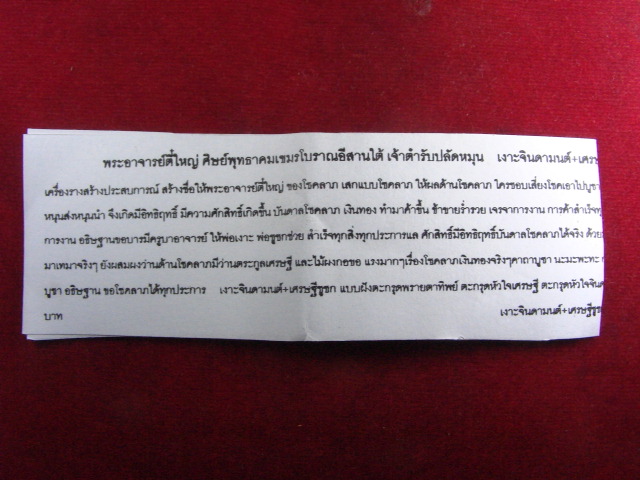 พระอาจารย์ตี๋ใหญ่ ศิษย์พุทธาคมเขมรโบราณอีสานใต้ เจ้าตำรับปลัดหมุน เงาะจินดามนต์+เศรษ
เครื่องรางสร้างประสบการณ์ สร้างชื่อให้พระอาจารย์ตี๋ใหญ่ ของโชคลาภ เสกแบบโชคลาภ ให้ผลด้านโชคลาภ ใครชอบเสี่ยงโชคเอาไปบูชา
หมุนส่งหนุนนำ จึงเกิดมีอิทธิฤทธิ์ มีความศักสิทธิ์เกิดขึ้น บันดาลโชคลาภ เงินทอง ทำมาค้าขึ้น ช้าขายร่ำรวย เจรจาการงาน การค้าสำเร็จทุ
การงาน อธิษฐานขอบารมีครูบาอาจารย์ ให้พ่อเงาะ พ่อชูชกช่วย สำเร็จทุกสิ่งทุกประการแล ศักสิทธิ์มีอิทธิฤทธิ์บันดาลโชคลาภได้จริง ด้วย
มาเหมาจริงๆ ยังผสมผงว่านด้านโชคลาภมีว่านตระกูลเศรษฐี และไม้มงกอขอ แรงมากๆเรื่องโชคลาภเงินทองจริงๆคาถาบูชา นะมะพะทะ
บูชา อธิษฐาน ขอโชคลาภได้ทุกประการ เงาะจินดามนต์+เศรษฐีชูชก แบบฝังตะกรุดพรายตาทิพย์ ตะกรุดหัวใจเศรษฐี ตะกรุดหัวใจจินด
บาท เงาะจินดามนต์+เศรษฐีชูช